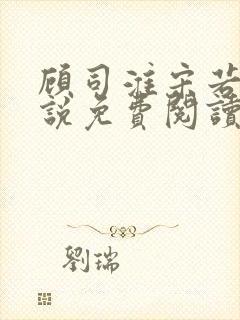 顾司淮宋若
說免費閱讀
劉瑞